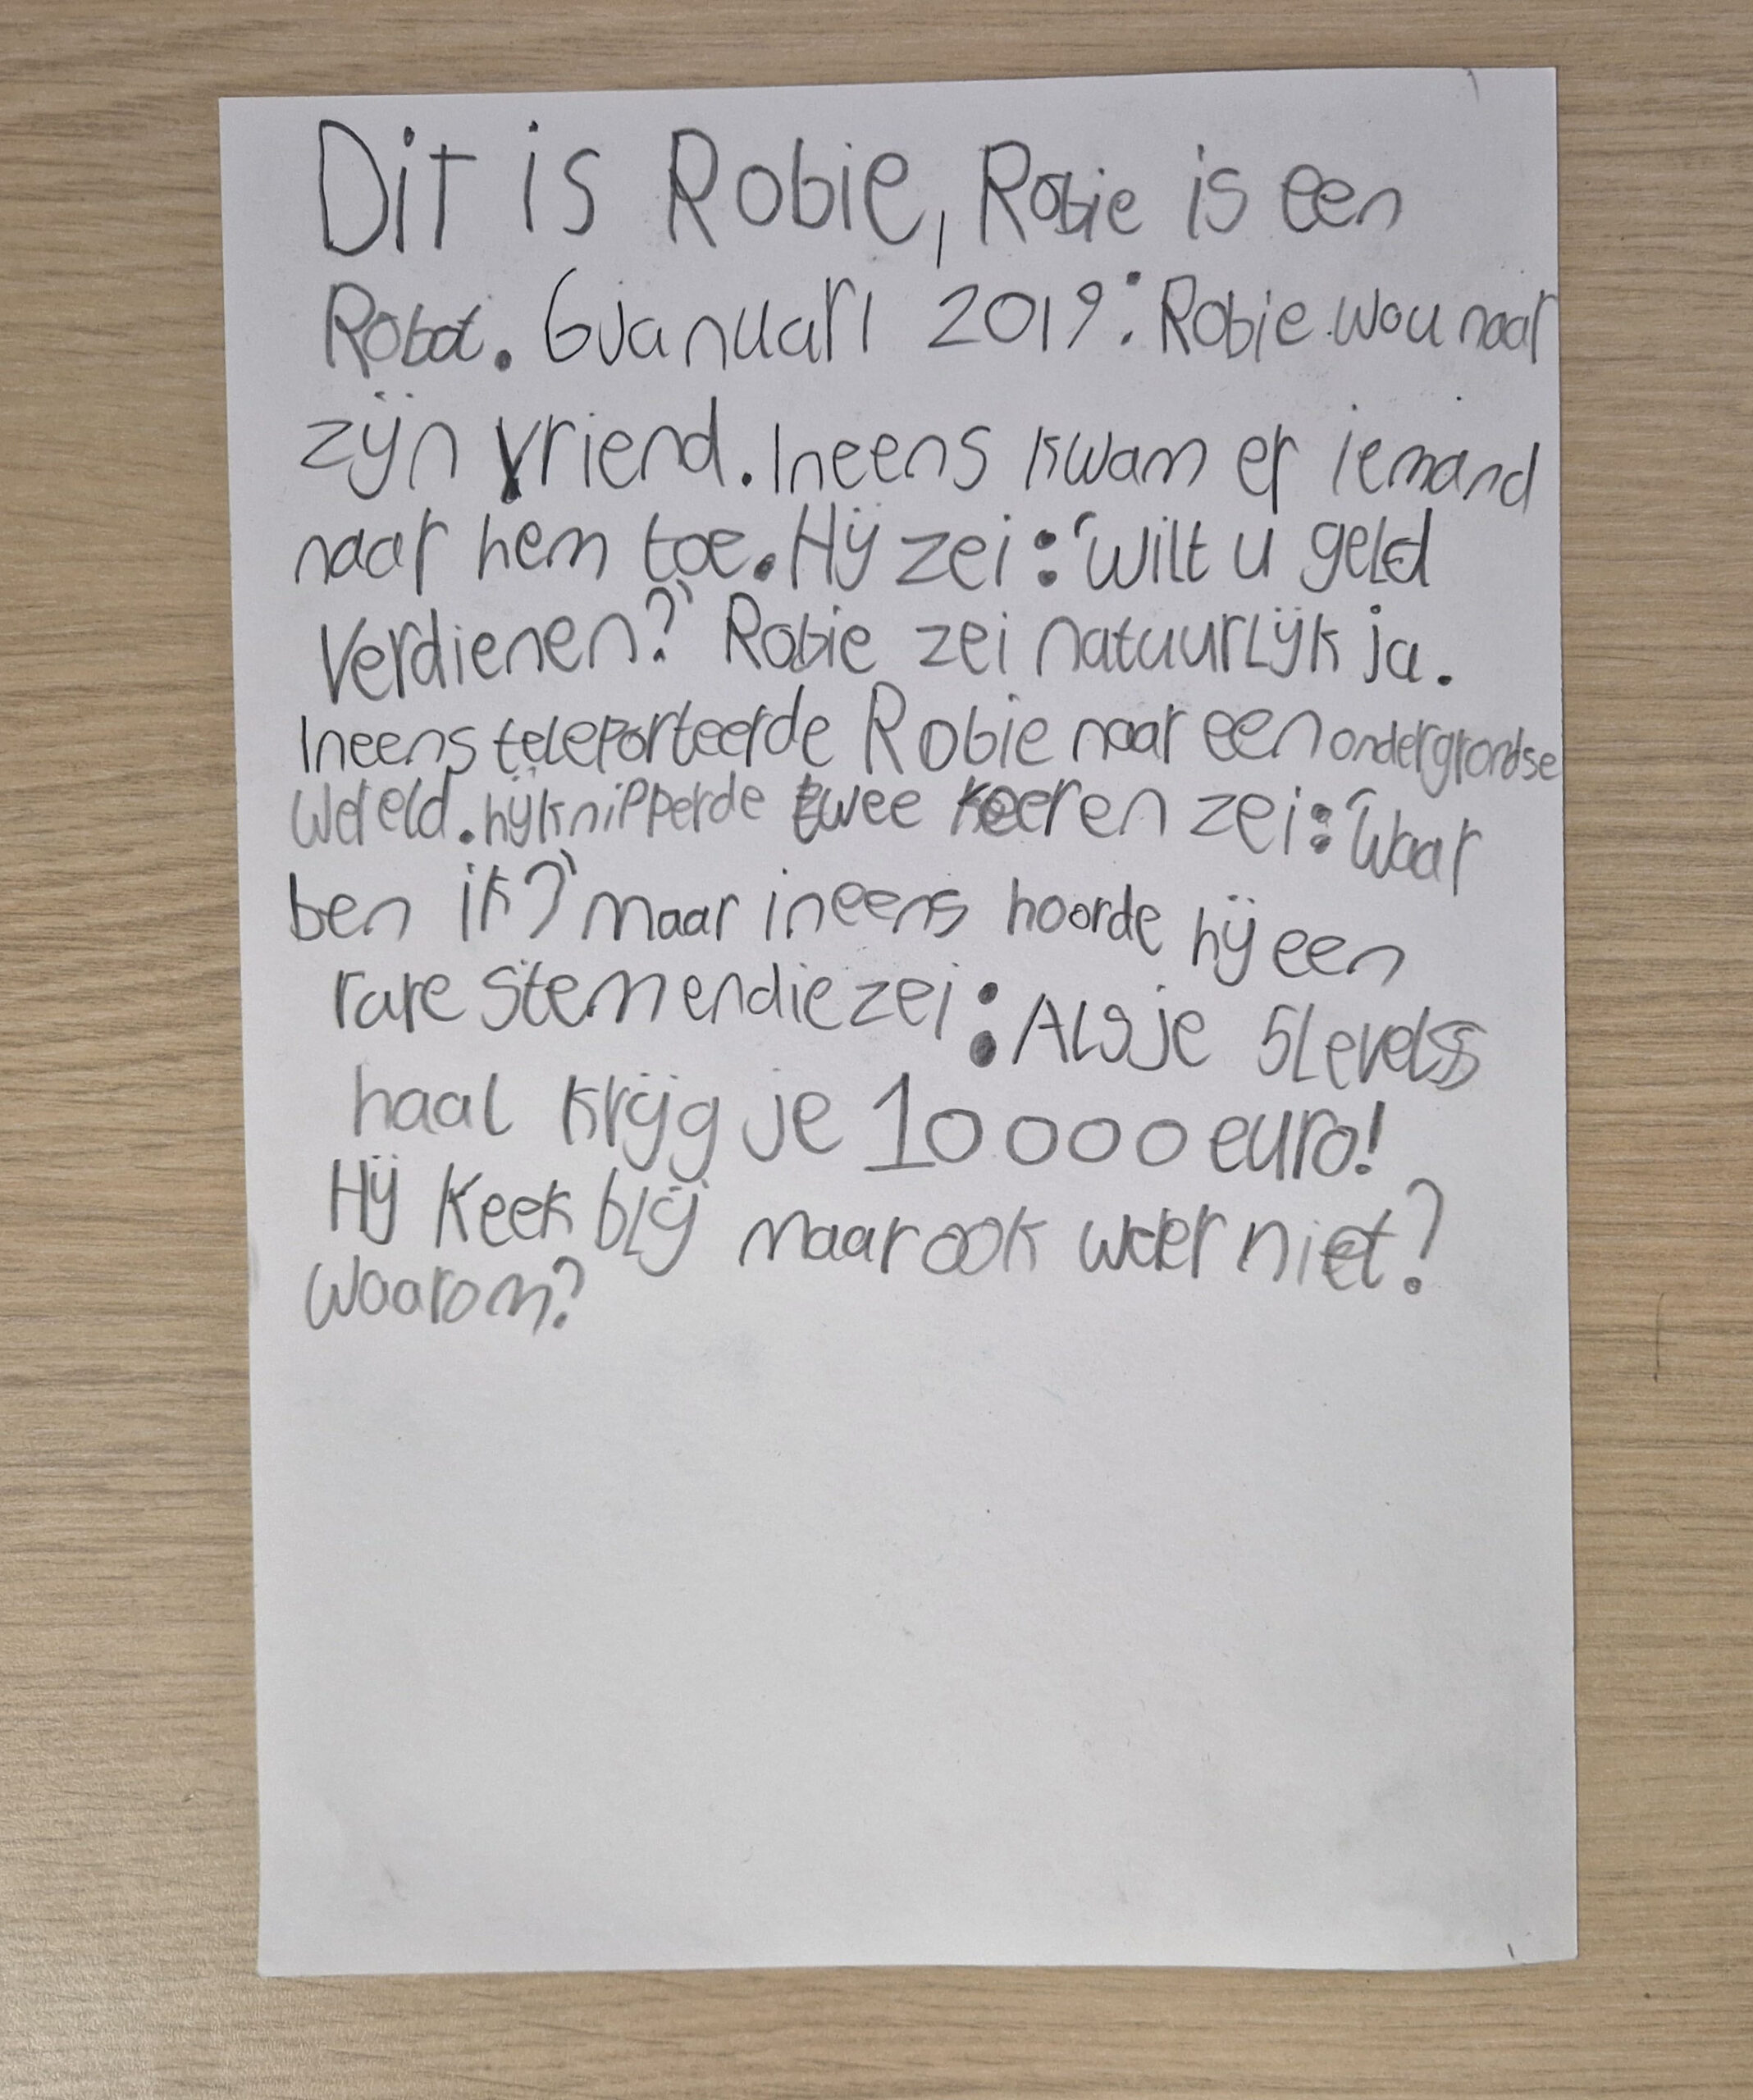 Dit is Robie, Robie is een
Robot. 6 januari 2019: Robie wou naar
zijn vriend. Ineens kwam er iemand
naar hem toe. Hij zei: 'Wilt u geld
verdienen?' Robie zei natuurlijk ja.
Ineens teleporteerde Robie naar een ondergrondse
wereld. hij knipperde twee keer en zei: 'Waar
ben ik?' maar ineens hoorde hij een
rare stem en die zei: Als je 5 levels
haal krijg je 10 000 euro!
Hij keek blij maar ook weer niet?
Waarom?